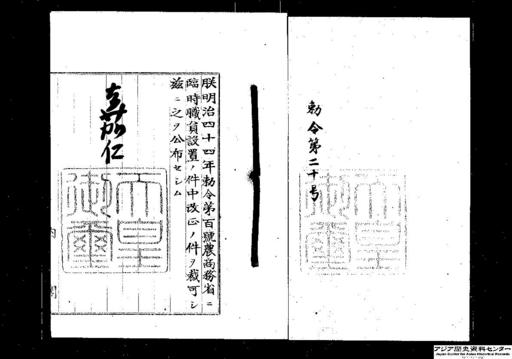 勅令第二十号
朕明治四十四年勅令第百號農商務省ニ
臨時職員設置ノ件中改正ノ件ヲ裁可シ
玆ニ之ヲ公布セシム
嘉仁
天皇
御璽
内閣
アジア歴史資料センター
Japan Center for Asian Historical Records